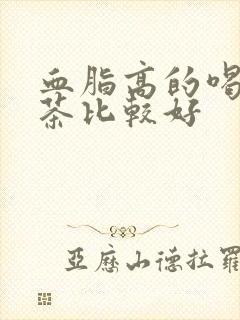 血脂高的喝
茶比较好
亚历山德拉罗